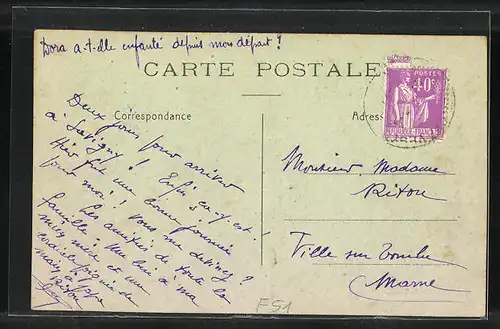 Dora a-t-elle enfanté depuis mon départ ?
CARTE POSTALE
Correspondance
Adres
POSTES
40c
REPUBLIQUE FRANÇAISE
Deux jours pour arriver
à Savigny ! Enfin ça-y-est.
Hier fut une bonne journée
pour moi !! Vous me devinez ?
Les amitiés de toute la
famille. Une bise à ma
mère et une
cordiale poignée de
main à
Monsieur, Madame
Rixon
Ville sur Tourbe
Marne
F51